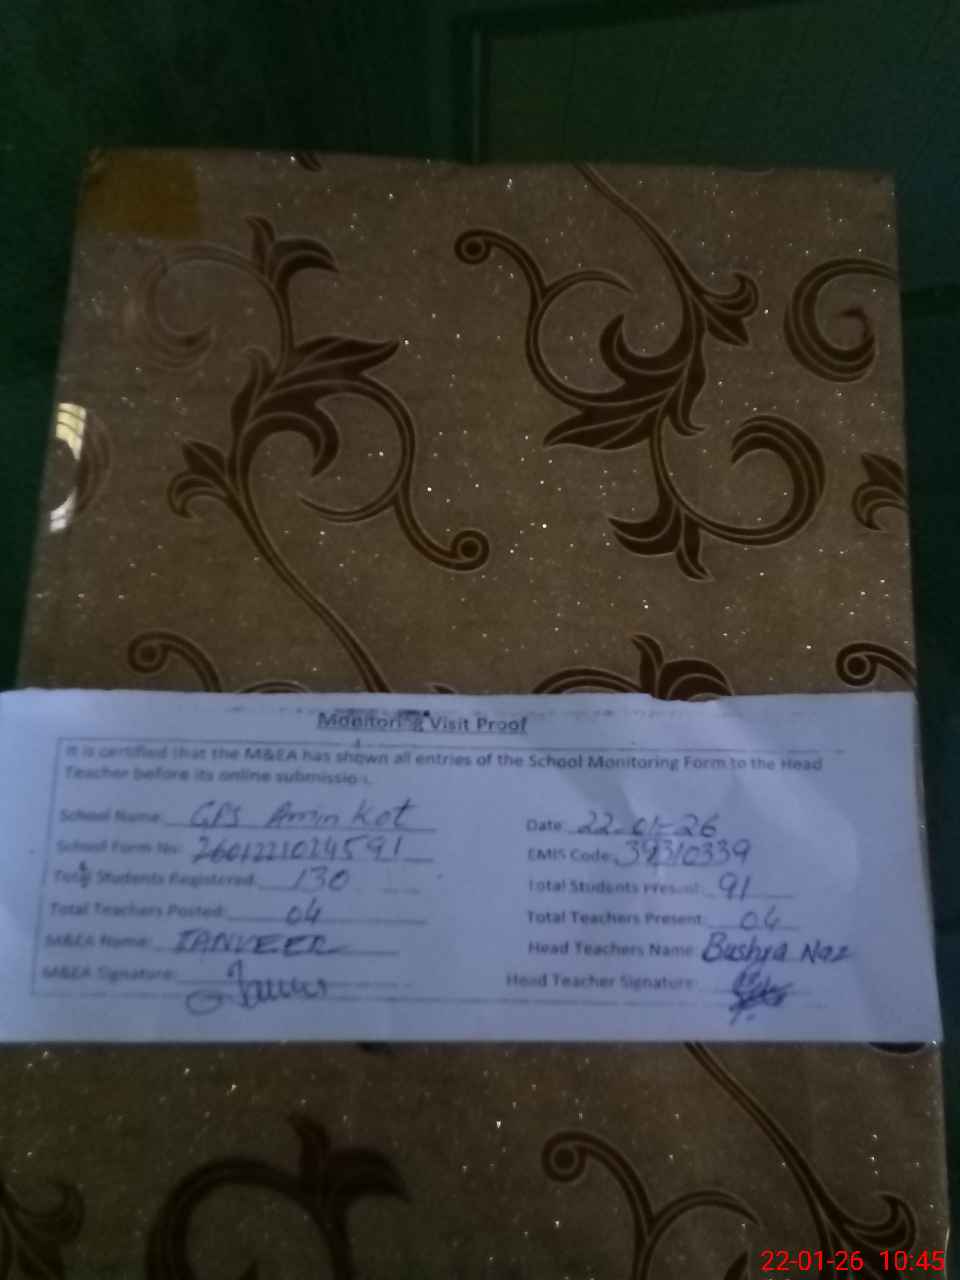 Monitoring Visit Proof
It is certified that the M&EA has shown all entries of the School Monitoring Form to the Head
Teacher before its online submission.
School Name: GPS Amin Kot
Date: 22-01-26
School Form No: 2601221024591
EMIS Code: 39310339
Total Students Registered: 130
Total Students Present: 91
Total Teachers Posted: 04
Total Teachers Present: 04
M&EA Name: TANVEER
Head Teachers Name: Bushra Naz
M&EA Signature:
Head Teacher Signature:
22-01-26 10:45